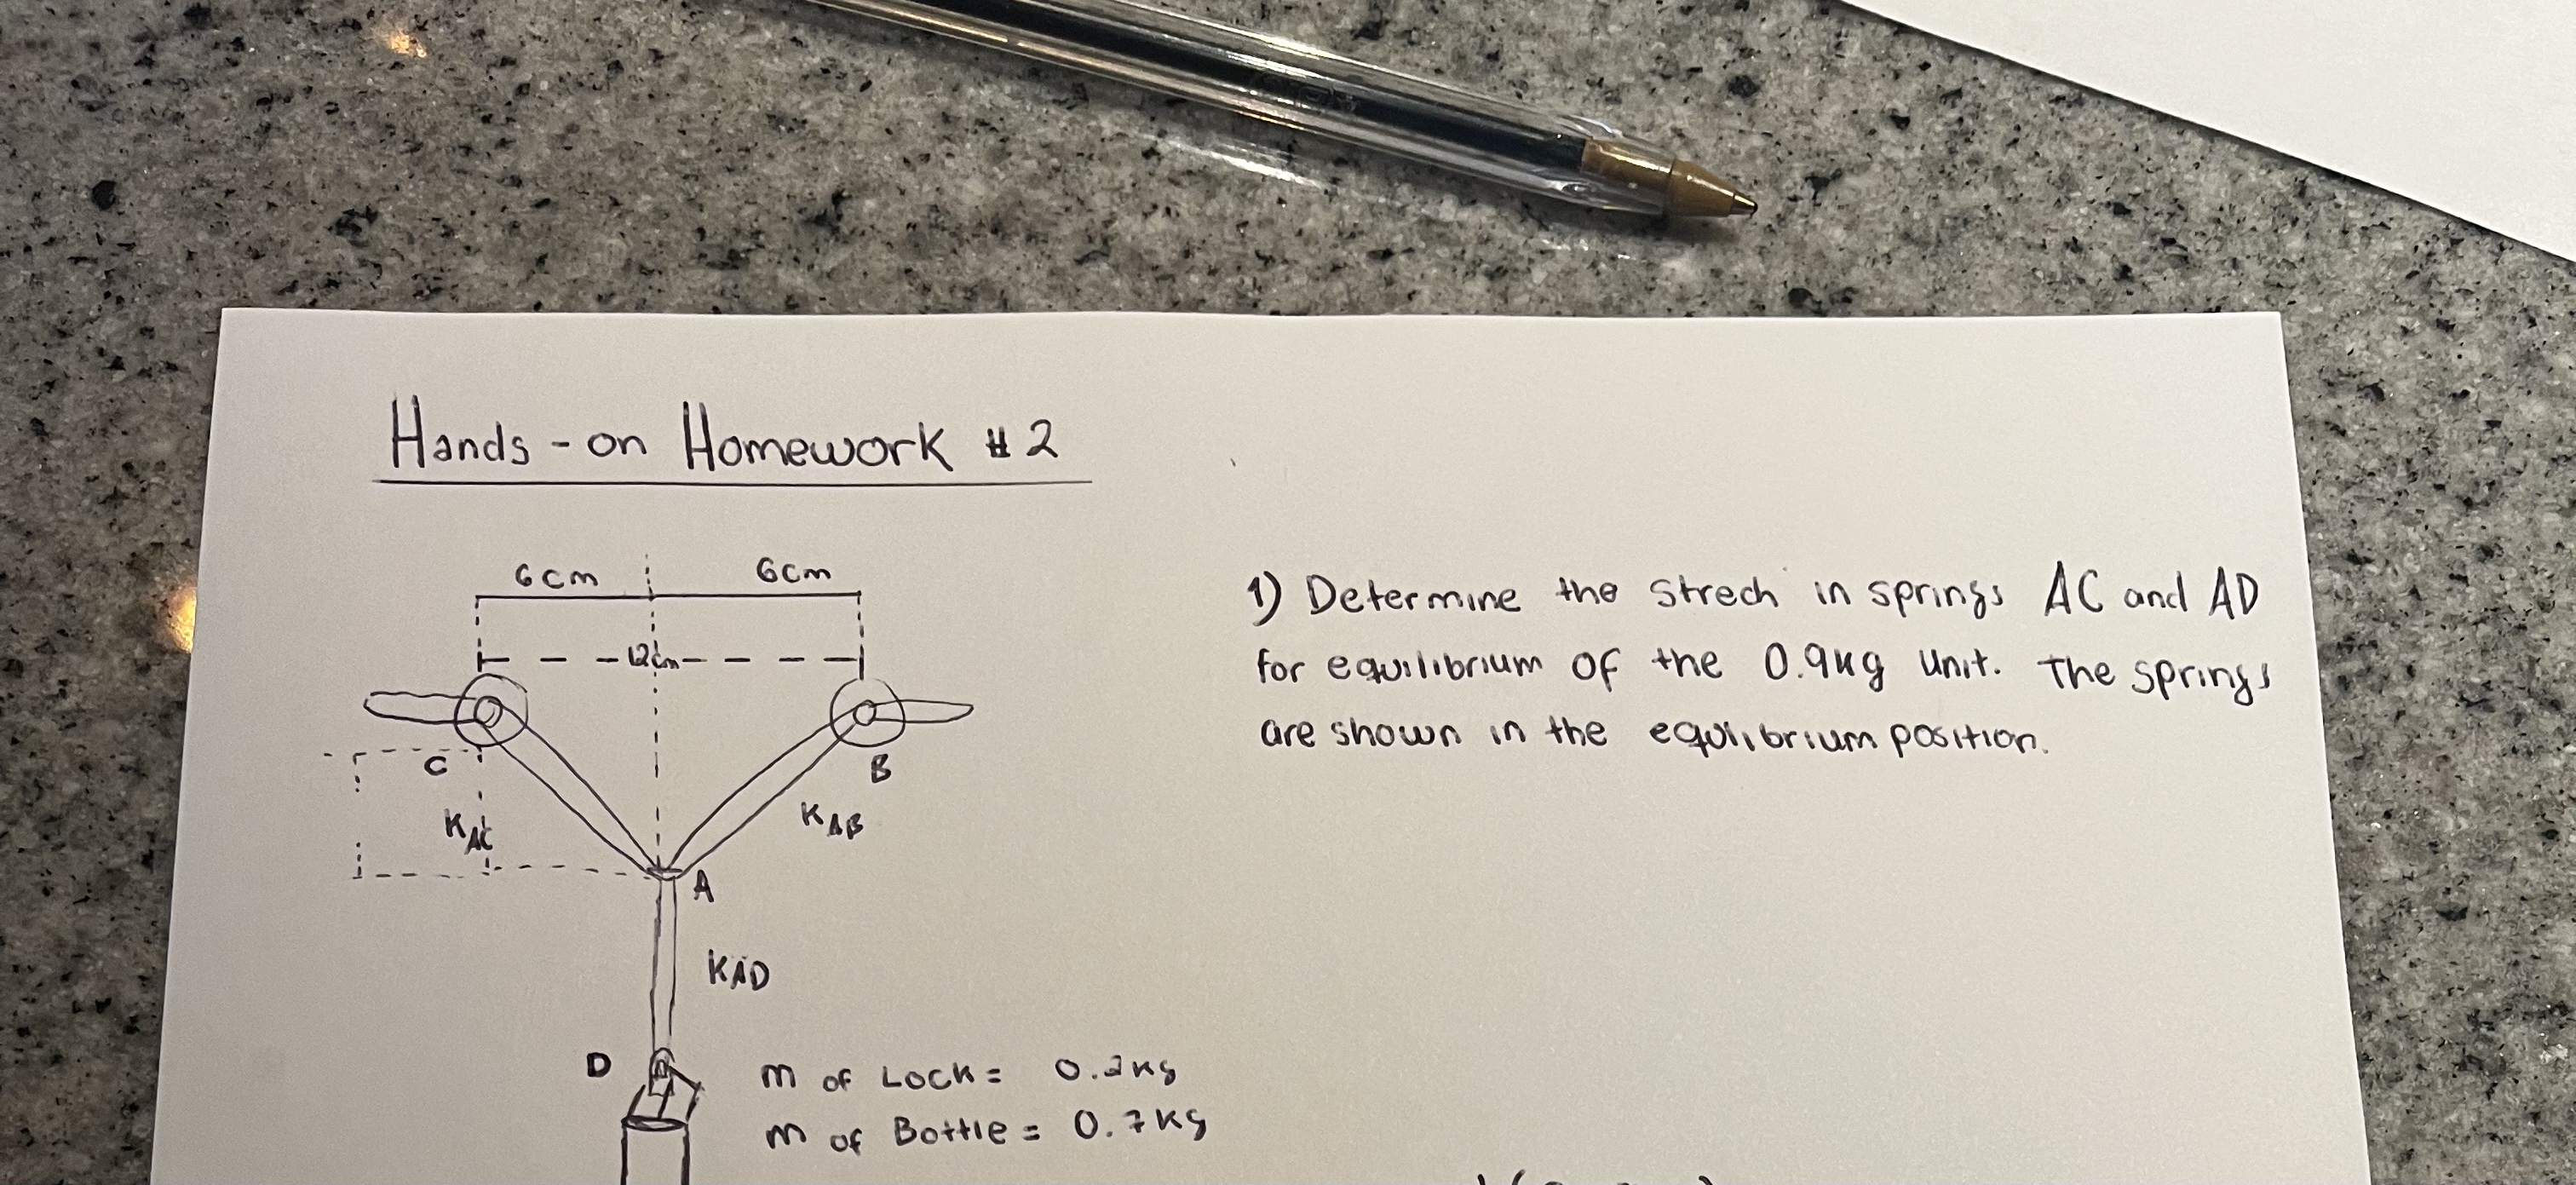 Hands-on Homework #2
6cm 6cm
12cm
C
B
K AC
K AB
A
KAD
D
m of Lock = 0.2kg
m of Bottle = 0.7kg
1) Determine the strech in springs AC and AD
for equilibrium of the 0.9kg unit. The springs
are shown in the equilibrium position.